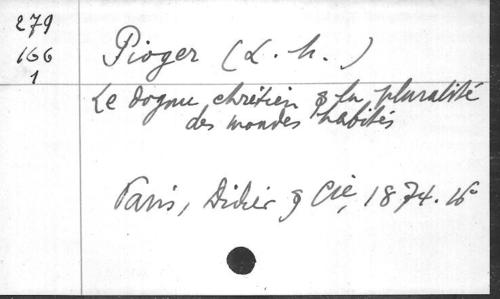 279
166
1
Pioger (L. M.)
Le dogme chrétien & la pluralité
des mondes habités
Paris, Didier & Cie, 1874. 16°